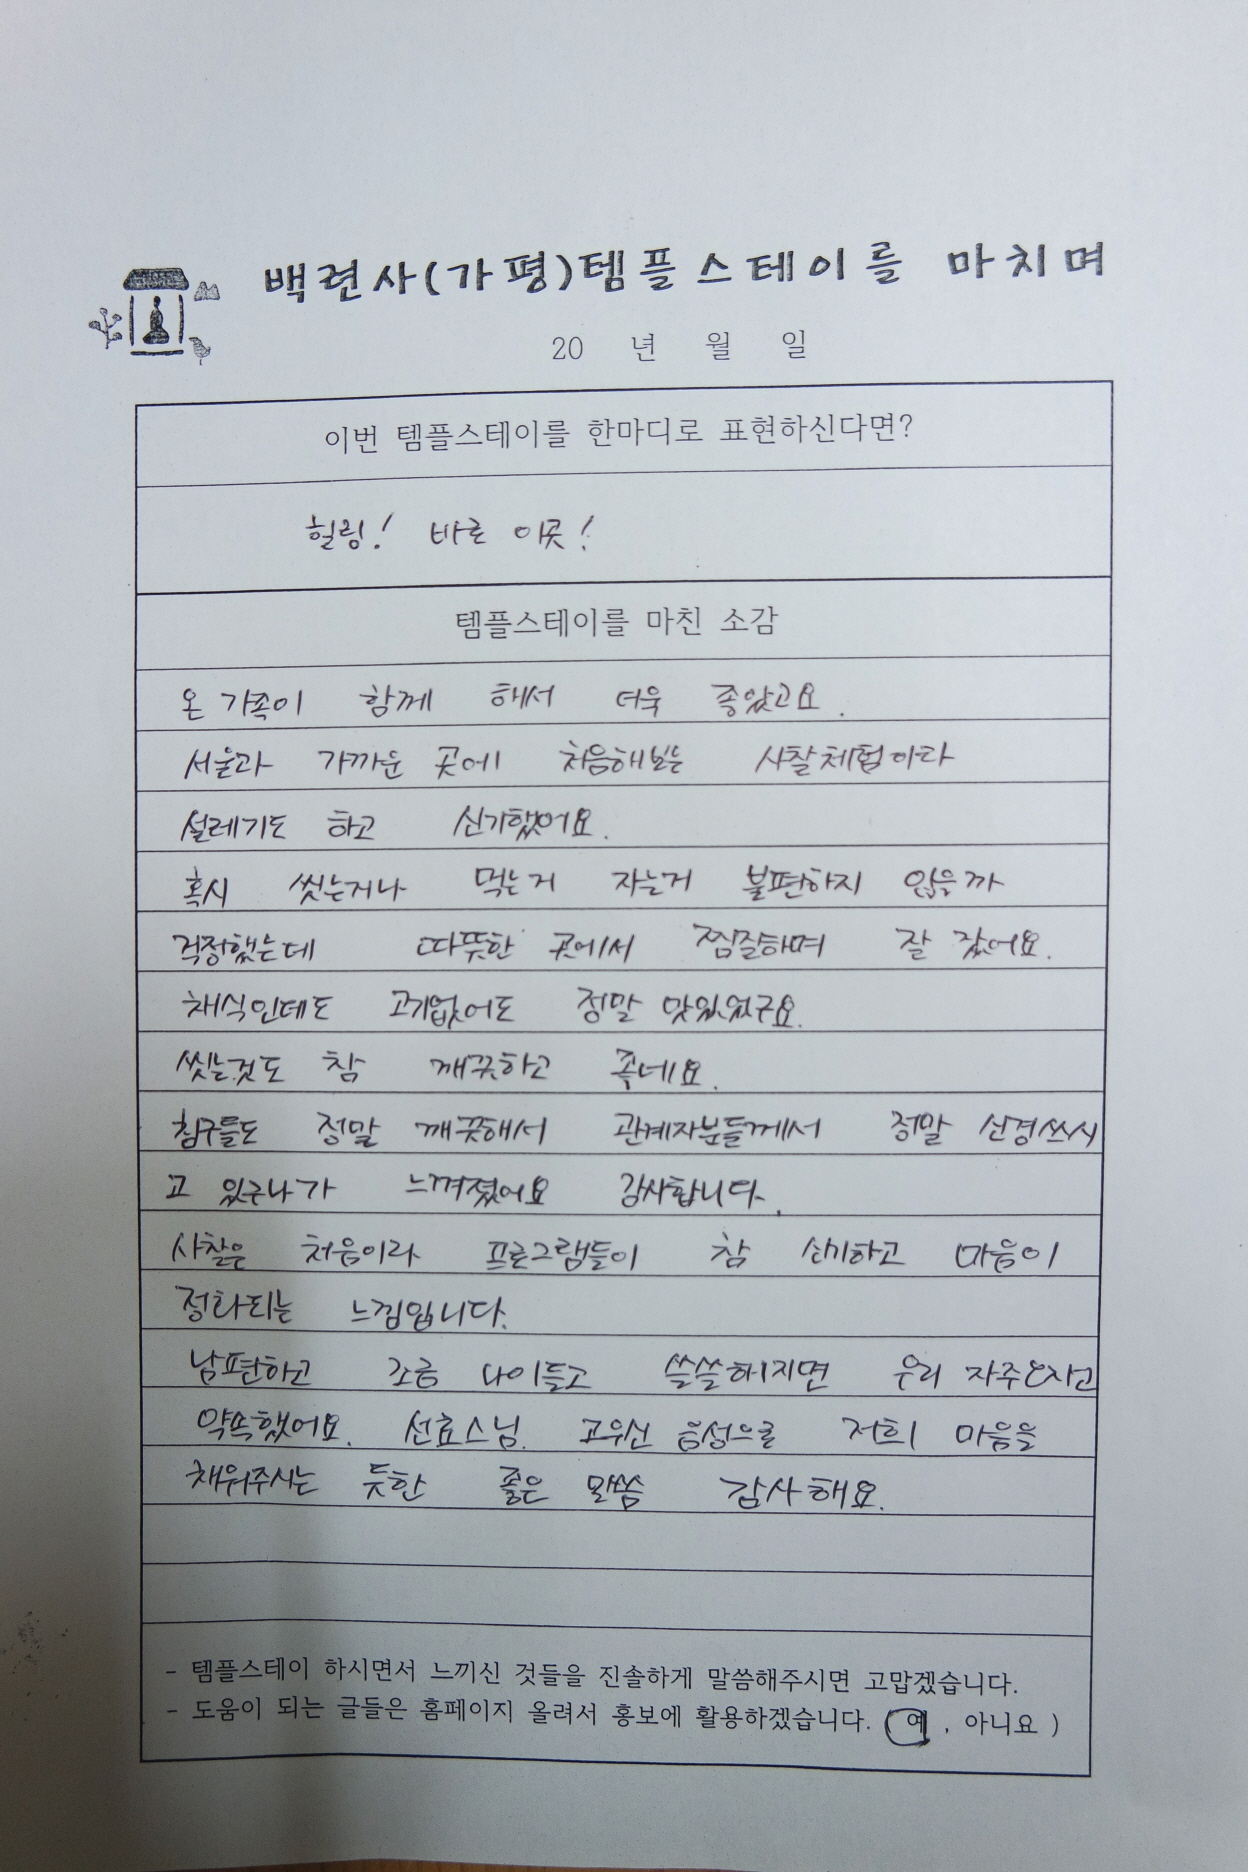 백련사(가평)템플스테이를 마치며
20 년 월 일
이번 템플스테이를 한마디로 표현하신다면?
힐링! 바로 이곳!
템플스테이를 마친 소감
온 가족이 함께 해서 더욱 좋았고요.
서울과 가까운 곳에 처음해보는 사찰체험이라
설레기도 하고 신기했어요.
혹시 씻는거나 먹는거 자는거 불편하지 않을까
걱정했는데 따뜻한 곳에서 찜질하며 잘 잤어요.
채식인데도 고기없어도 정말 맛있었구요.
씻는것도 참 깨끗하고 좋네요.
침구들도 정말 깨끗해서 관계자분들께서 정말 신경쓰시
고 있구나가 느껴졌어요 감사합니다.
사찰은 처음이라 프로그램들이 참 신기하고 마음이
정화되는 느낌입니다.
남편하고 조금 나이들고 쓸쓸해지면 우리 자주오자고
약속했어요. 선효스님 고우신 음성으로 저희 마음을
채워주시는 듯한 좋은 말씀 감사해요.
- 템플스테이 하시면서 느끼신 것들을 진솔하게 말씀해주시면 고맙겠습니다.
- 도움이 되는 글들은 홈페이지 올려서 홍보에 활용하겠습니다. ( 예 , 아니요 )